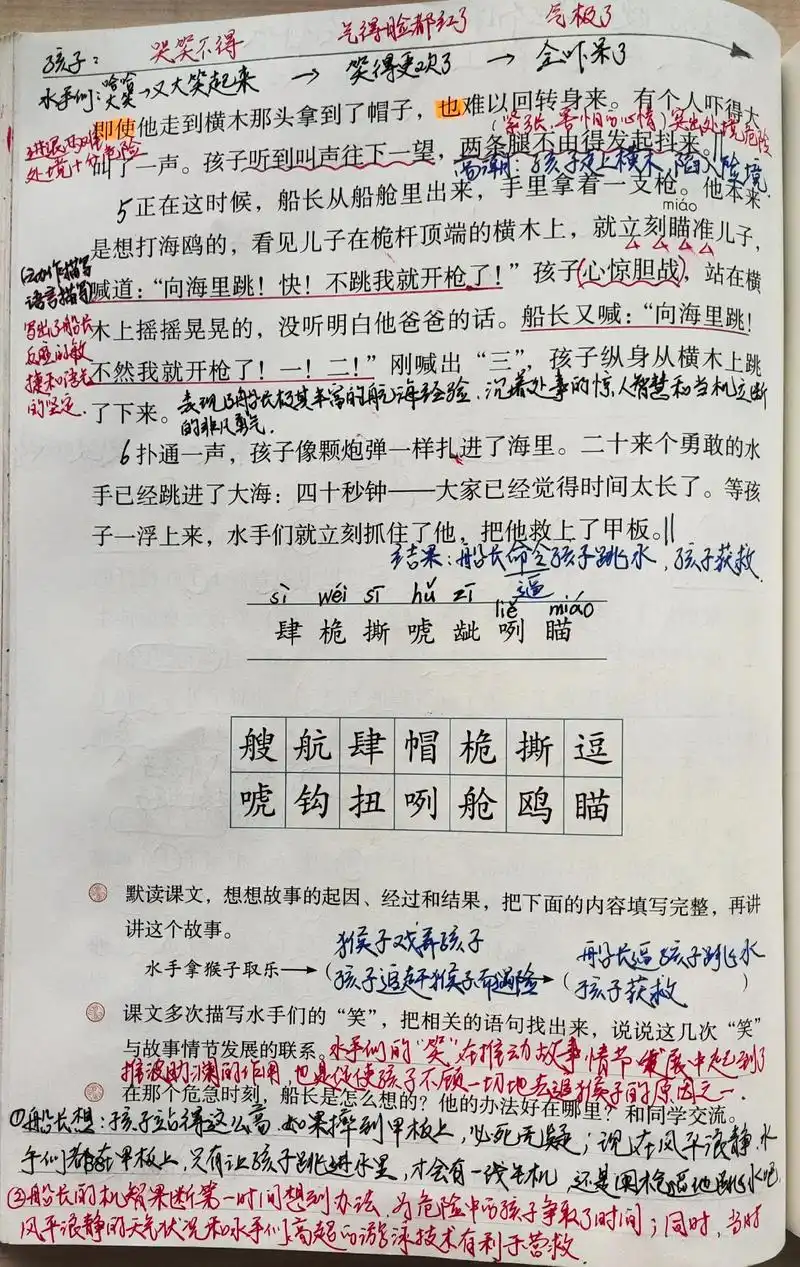 孩子: 哭笑不得 气得脸都红了 气极了
水手们:哈哈大笑→又大笑起来 → 笑得更欢了 → 全吓呆了
即使他走到横木那头拿到了帽子，也难以回转身来。有个人吓得大
进退两难 处境十分危险
(紧张、害怕的心情)突出处境危险
叫了一声。孩子听到叫声往下一望，两条腿不由得发起抖来。||
高潮:孩子走上横木,陷入险境.
5正在这时候，船长从船舱里出来，手里拿着一支枪。他本来
miáo
是想打海鸥的，看见儿子在桅杆顶端的横木上，就立刻瞄准儿子，
(动作描写 语言描写)
喊道：“向海里跳！快！不跳我就开枪了！”孩子(心惊胆战)，站在横
写出了船长反应的敏捷和语气的坚定.
木上摇摇晃晃的，没听明白他爸爸的话。船长又喊：“向海里跳！
不然我就开枪了！一！二！”刚喊出“三”，孩子纵身从横木上跳
了下来。表现了船长极其丰富的航海经验、沉着处事的惊人智慧和当机立断
的非凡勇气.
6扑通一声，孩子像颗炮弹一样扎进了海里。二十来个勇敢的水
手已经跳进了大海：四十秒钟——大家已经觉得时间太长了。等孩
子一浮上来，水手们就立刻抓住了他，把他救上了甲板。||
结果:船长命令孩子跳水,孩子获救.
逼
sì wéi sī hǔ zī liě miáo
肆 桅 撕 唬 龇 咧 瞄
艘 航 肆 帽 桅 撕 逗
唬 钩 扭 咧 舱 鸥 瞄
默读课文，想想故事的起因、经过和结果，把下面的内容填写完整，再讲
讲这个故事。
猴子戏弄孩子 船长逼孩子跳水
水手拿猴子取乐→(孩子追赶猴子而遇险→(孩子获救 )
课文多次描写水手们的“笑”，把相关的语句找出来，说说这几次“笑”
与故事情节发展的联系。水手们的“笑”在推动故事情节发展中起到了
推波助澜的作用,也是促使孩子不顾一切地去追猴子的原因之一.
在那个危急时刻，船长是怎么想的？他的办法好在哪里？和同学交流。
①船长想:孩子站得这么高,如果摔到甲板上,必死无疑;现在风平浪静,水
手们都在甲板上,只有让孩子跳进水里,才会有一线生机,还是用枪逼他跳水吧.
②船长的机智果断第一时间想到办法,为危险中的孩子争取了时间;同时,当时
风平浪静的天气状况和水手们高超的游泳技术有利于营救.